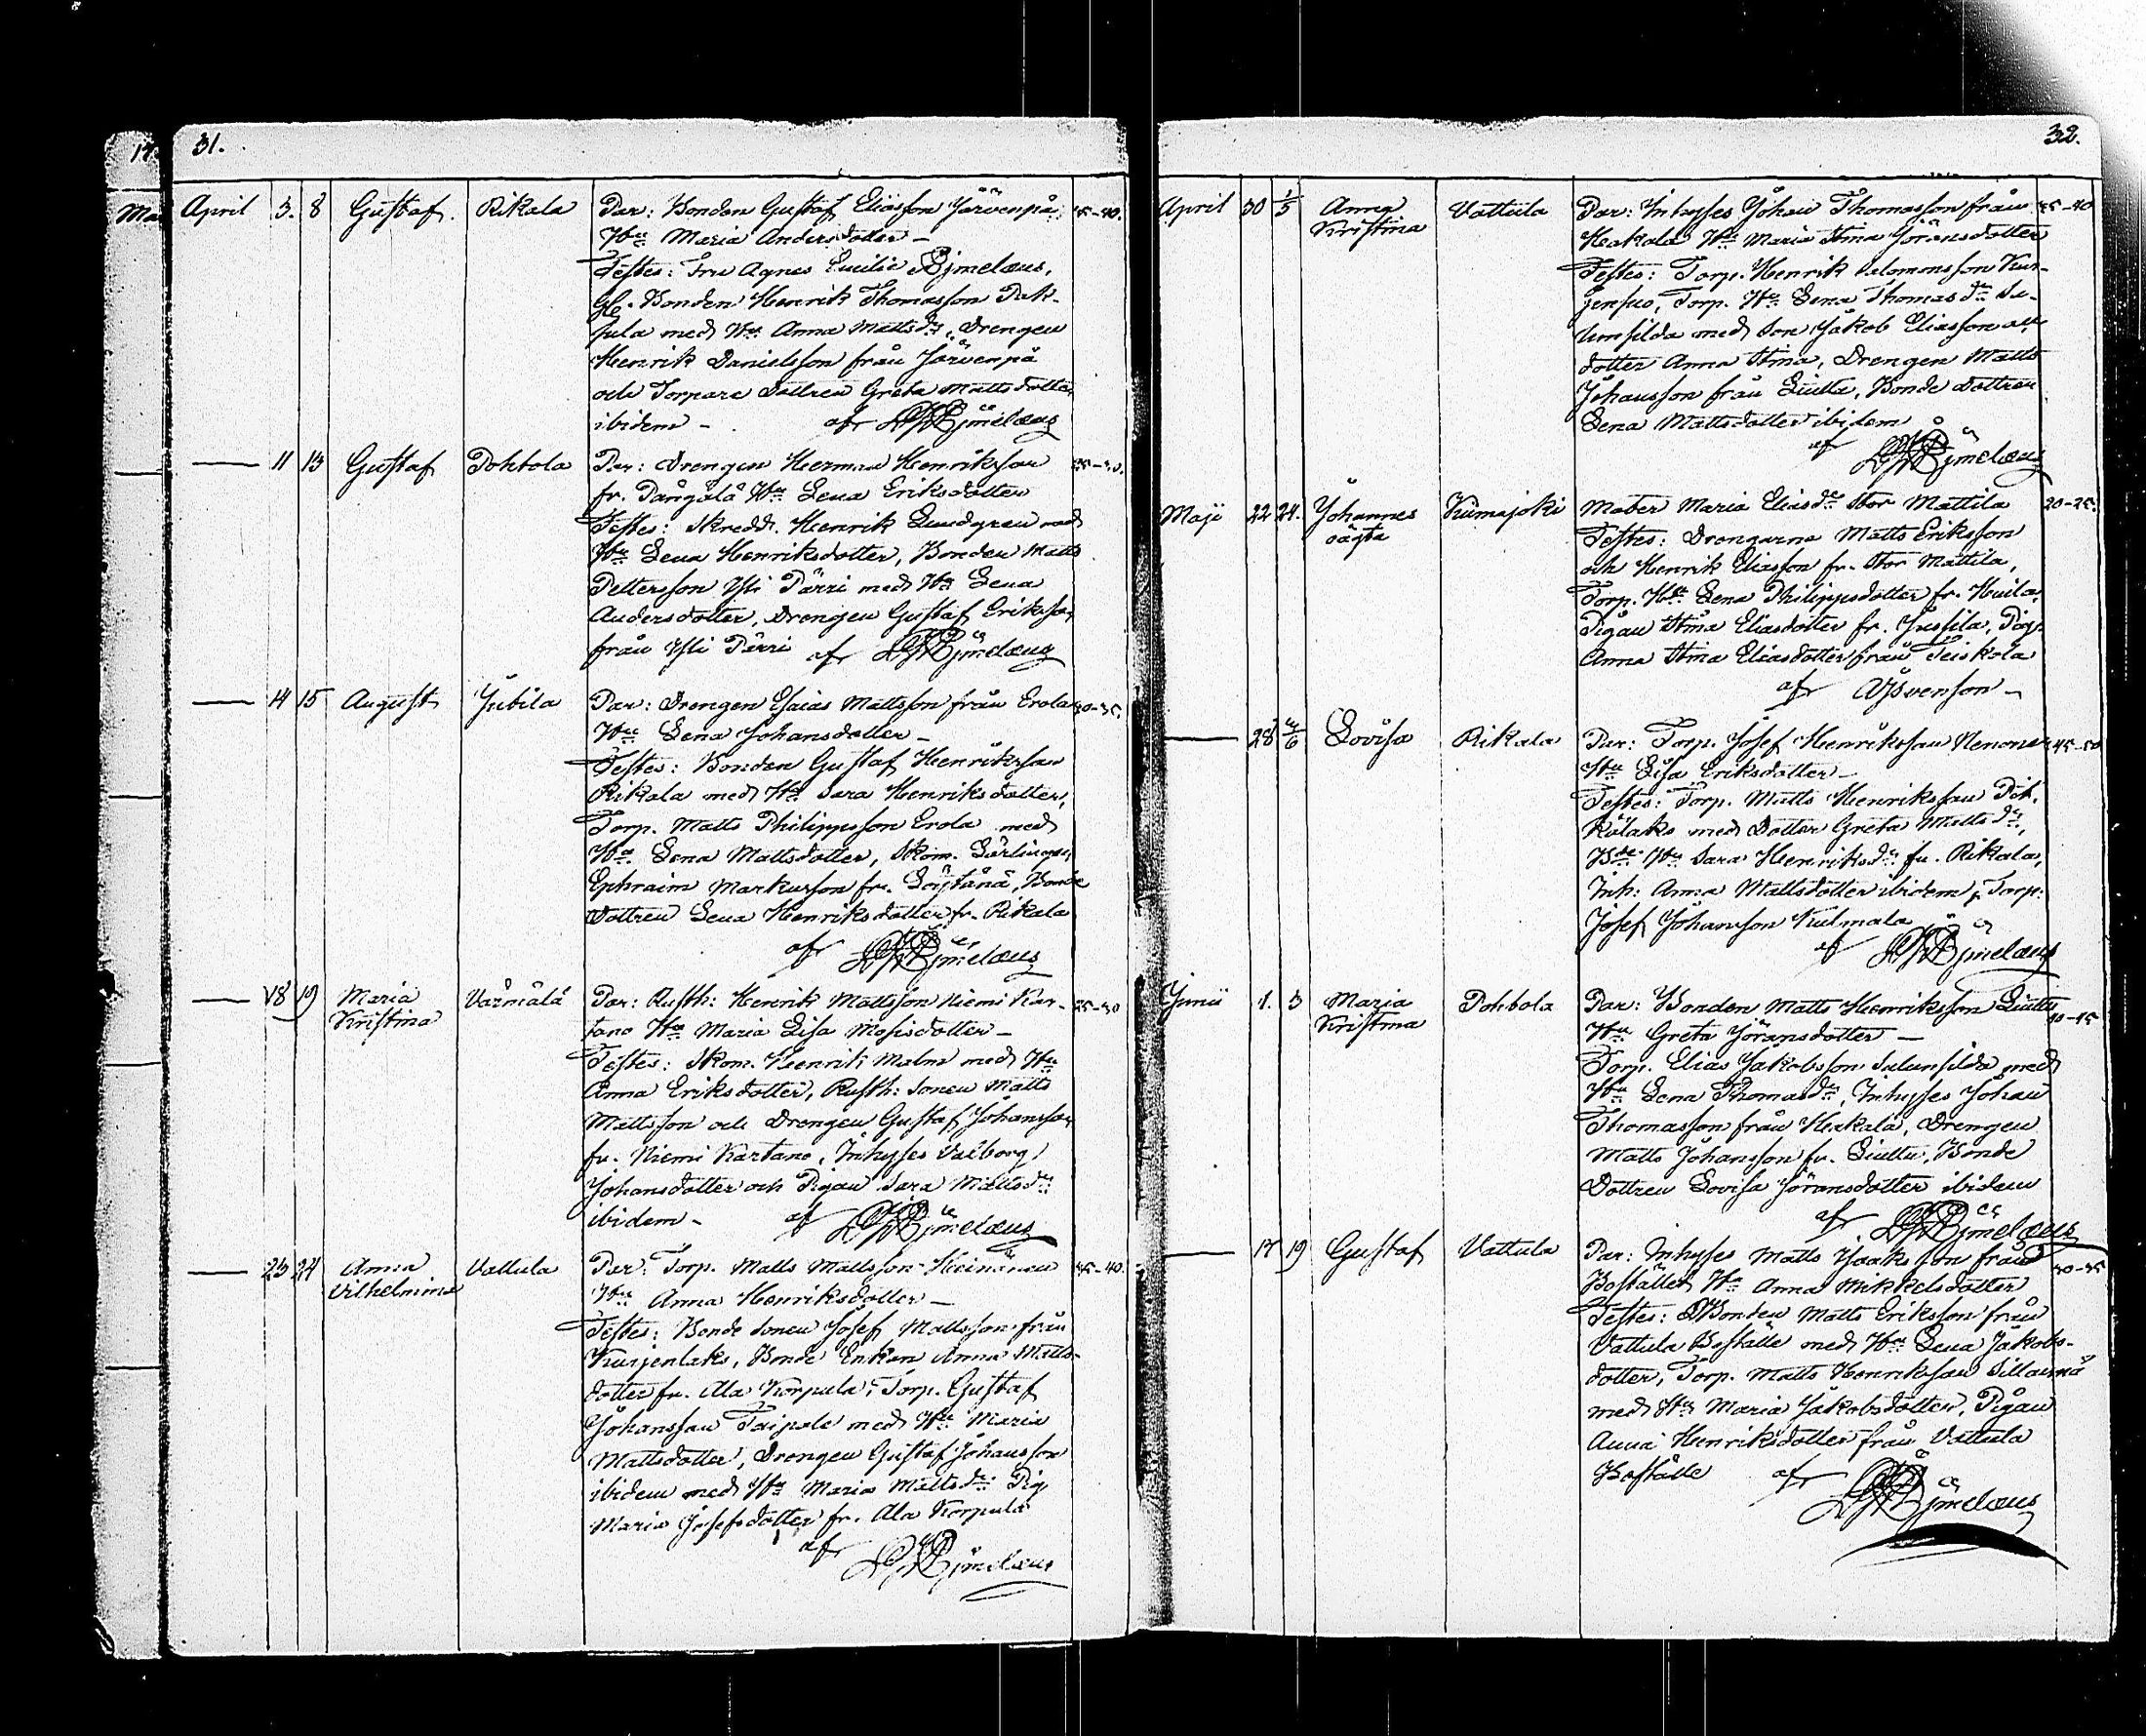 31.
April 3. 8 Gustaf. Rikala Par: Bonden Gustaf Eliasson Järvenpä, 35-40.
Hu Maria Andersdotter –
Testes: Fru Agnes Emilie Björnelæus,
Gl. Bonden Henrik Thomasson Pak-
jula med Hu Anna Mattsdr, Drengen
Henrik Danielsson från Järvenpä
och Torpare dottren Greta Mattsdotter
ibidem –
af
11 13 Gustaf Pohbola Par: Drengen Herman Henriksson
fr. Hu Lena Eriksdotter
Testes: Skredd. Henrik Lundgren med
Hu Lena Henriksdotter, Bonden Matts
Pettersson Yli Pärri med Hu Lena
Andersdotter, Drengen Gustaf Eriksson
från Yli Pärri af
14 15 August Jutila Par: Drengen Esaias Mattsson från Erola 30-35.
Hu Lena Johansdotter –
Testes: Bonden Gustaf Henriksson
Rikala med Hu Sara Henriksdotter,
Torp. Matts Philippsson Erola med
Hu Lena Mattsdotter, Skom. Lärlingen
Ephraim Markusson fr. Bonde
dottren Lena Henriksdotter fr. Rikala
af
18 19 Maria Varmälä Par: Rusth: Henrik Mattsson Niemi Kar-
Kristina tano Hu Maria Lisa Mosisdotter –
Testes: Skom. Henrik Malm med Hu
Anna Eriksdotter, Rusth: sonen Matts
Mattsson och Drengen Gustaf Johansson
fr. Niemi Kartano, Inhyses Valborg
Johansdotter och Pigan Sara Mattsdr
ibidem – af
23 24 Anna Vattula Par: Torp. Matts Mattsson Heinänen 35-40.
Vilhelmina Hu Anna Henriksdotter –
Testes: Bonde sonen Josef Mattsson från
Kurjenlaks, Bonde Enkan Anna Matts-
dotter fr. Ala Korpula, Torp. Gustaf
Johansson Taipale med Hu Maria
Mattsdotter, Drengen Gustaf Johansson
ibidem med Hu Maria Mattsdr Pig.
Maria Josefsdotter fr. Ala Korpula
af
32.
April 30 1/5 Anna Vattula Par: Inhyses Johan Thomasson från 35-40
Kristina Hakala Hu Maria Stina Göransdotter
Testes: Torp. Henrik Salomonsson Kur-
jensuo, Torp. Hu Lena Thomasdr Sa-
lunsilda med son Jakob Eliasson och
dotter Anna Stina, Drengen Matts
Johansson från Liuttu, Bonde dottren
Lena Mattsdotter ibidem
af
Maji 22 24. Johannes Kumajoki Mater Maria Eliasdr Stor Mattila 20-25.
oägta Testes: Drengarne Matts Eriksson
och Henrik Eliasson fr. Stor Mattila,
Torp. Hu Lena Philippsdotter fr.
Pigan Stina Eliasdotter fr. Jussila, Pig.
Anna Stina Eliasdotter från Teiskola
af
28 4/6 Lovisa Rikala Par: Torp. Josef Henriksson Nenonen 45-50
Hu Lisa Eriksdotter –
Testes: Torp. Matts Henriksson Pit-
kälaks med dotter Greta Mattsdr,
Hu Sara Henriksdr fr. Rikala,
Inh: Anna Mattsdotter ibidem, Torp:
Josef Johansson Kulmala
af
Junii 1. 3 Maria Pohbola Par: Bonden Matts Henriksson Liuttu
Kristina Hu Greta Göransdotter –
Torp. Elias Jakobsson Salunsilda med
Hu Lena Thomasdr, Inhyses Johan
Thomasson från Hakala, Drengen
Matts Johansson fr. Liuttu, Bonde
dottren Lovisa Göransdotter ibidem
af
17 19 Gustaf Vattula Par: Inhyses Matts Isaksson från
Bostället Hu Anna Mikkelsdotter
Testes: Bonden Matts Eriksson från
Vattula Boställe med Hu Lena Jakobs-
dotter, Torp. Matts Henriksson
med Hu Maria Jakobsdotter, Pigan
Anna Henriksdotter från Vattula
Boställe af